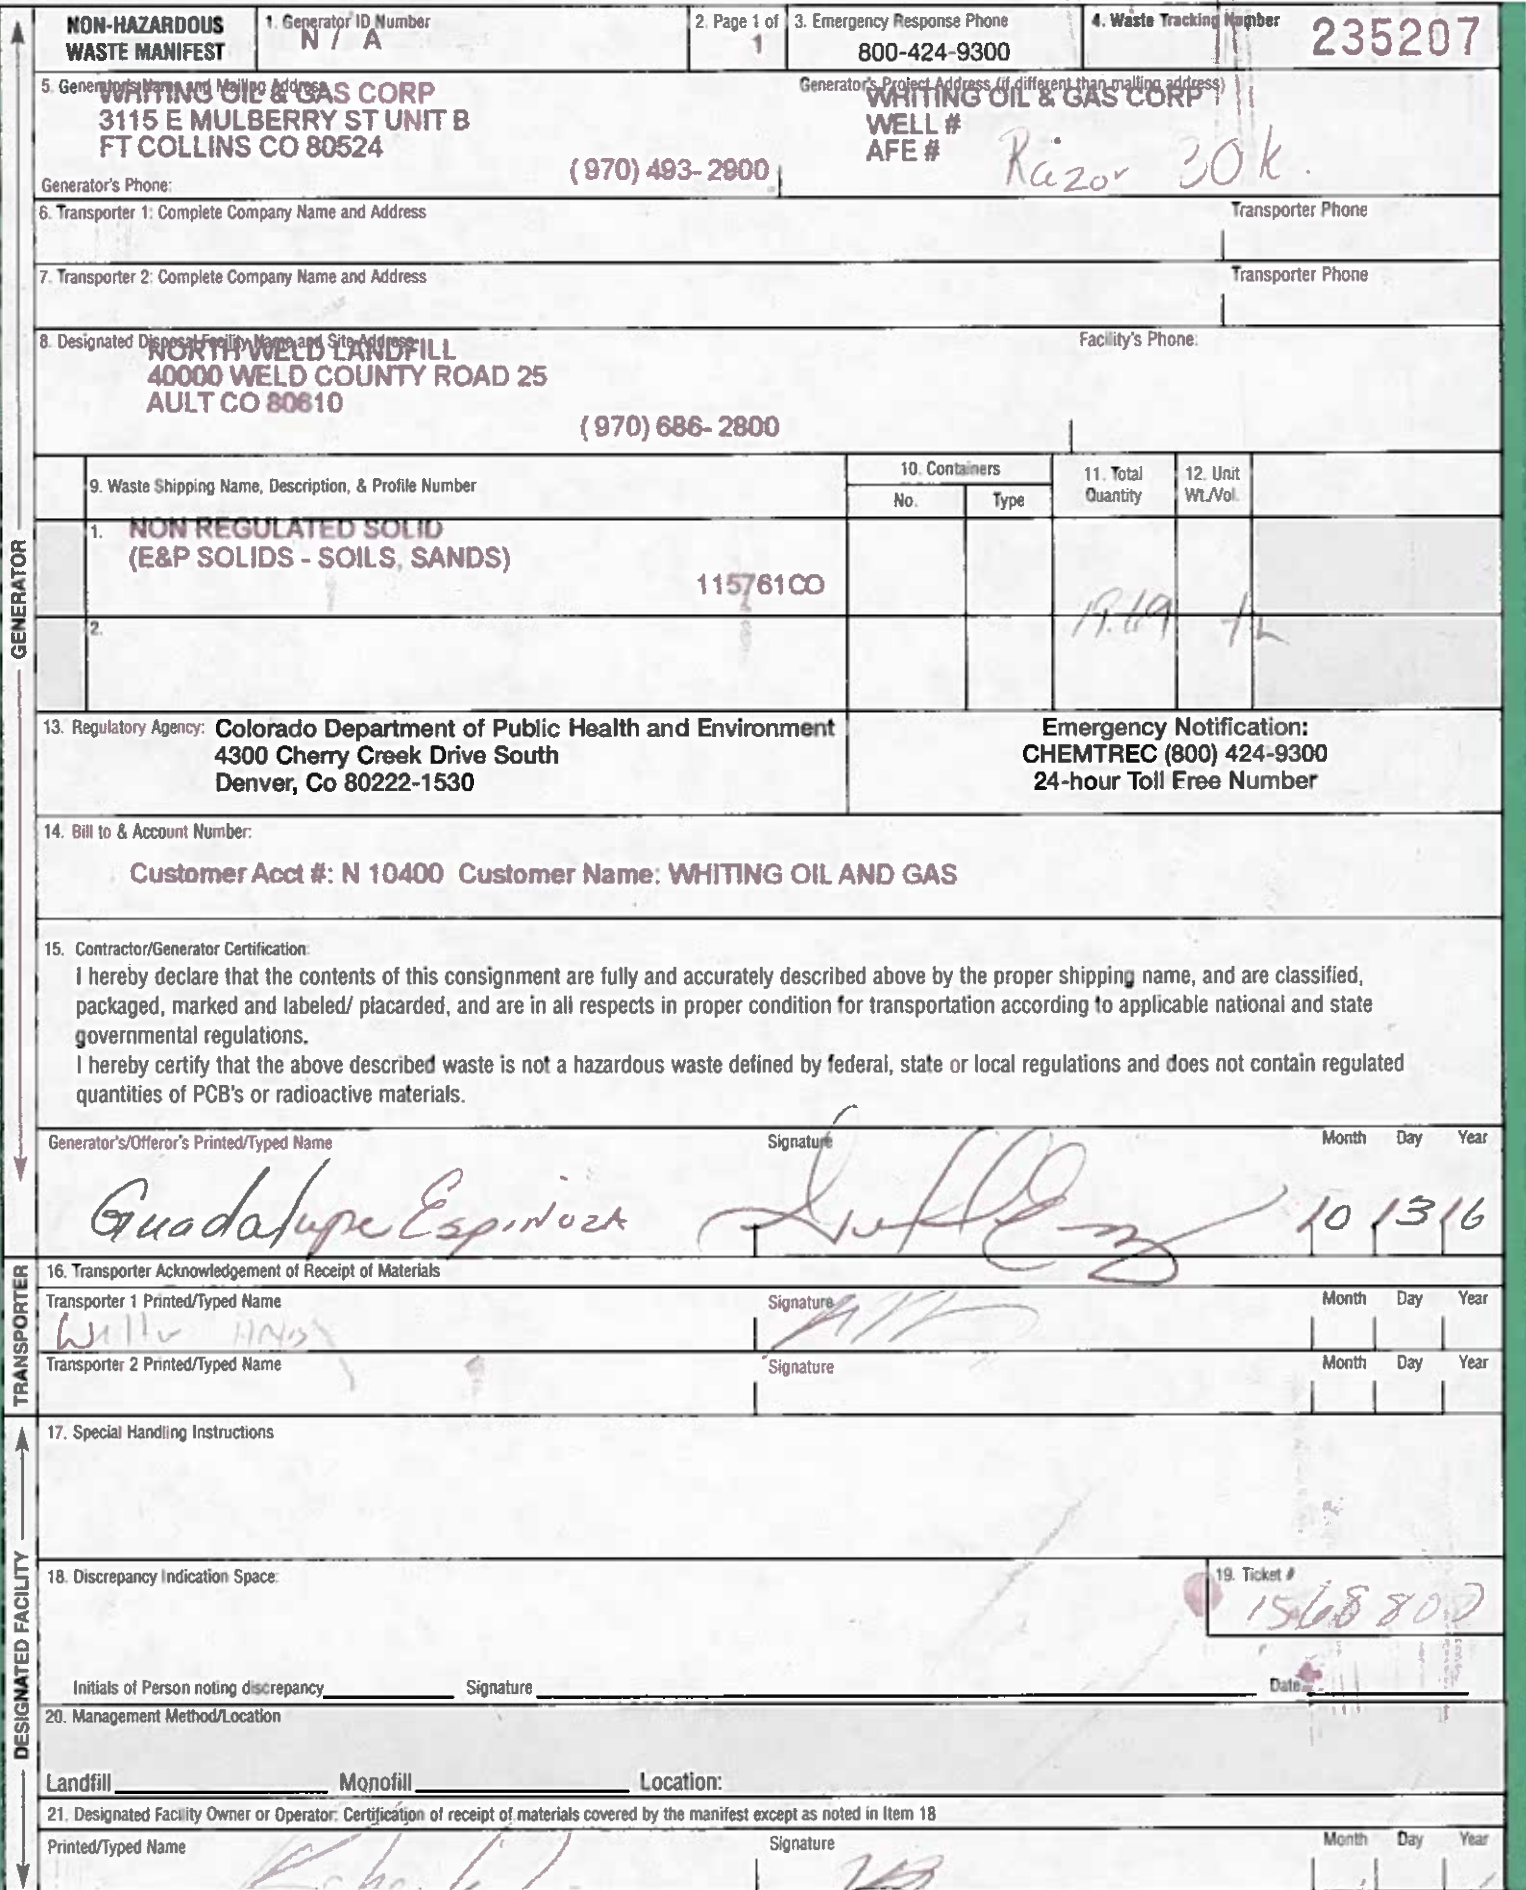 NON-HAZARDOUS
WASTE MANIFEST
1. Generator ID Number
N / A
2. Page 1 of
1
3. Emergency Response Phone
800-424-9300
4. Waste Tracking Number
235207
5. Generator's Name and Mailing Address
WHITING OIL & GAS CORP
3115 E MULBERRY ST UNIT B
FT COLLINS CO 80524
(970) 493-2900
Generator's Phone:
Generator's Project Address (if different than mailing address)
WHITING OIL & GAS CORP
WELL #
AFE #
Razor 30K.
6. Transporter 1: Complete Company Name and Address
Transporter Phone
7. Transporter 2: Complete Company Name and Address
Transporter Phone
8. Designated Disposal Facility Name and Site Address:
Facility's Phone:
NORTH WELD LANDFILL
40000 WELD COUNTY ROAD 25
AULT CO 80610
(970) 686-2800
9. Waste Shipping Name, Description, & Profile Number
10. Containers
No.
Type
11. Total
Quantity
12. Unit
Wt./Vol.
1. NON REGULATED SOLID
(E&P SOLIDS - SOILS, SANDS)
115761CO
19.69
2.
13. Regulatory Agency: Colorado Department of Public Health and Environment
4300 Cherry Creek Drive South
Denver, Co 80222-1530
Emergency Notification:
CHEMTREC (800) 424-9300
24-hour Toll Free Number
14. Bill to & Account Number:
Customer Acct #: N 10400 Customer Name: WHITING OIL AND GAS
15. Contractor/Generator Certification:
I hereby declare that the contents of this consignment are fully and accurately described above by the proper shipping name, and are classified,
packaged, marked and labeled/ placarded, and are in all respects in proper condition for transportation according to applicable national and state
governmental regulations.
I hereby certify that the above described waste is not a hazardous waste defined by federal, state or local regulations and does not contain regulated
quantities of PCB's or radioactive materials.
Generator's/Offeror's Printed/Typed Name
Signature
Month Day Year
Guadalupe Espinoza
10 13 16
16. Transporter Acknowledgement of Receipt of Materials
Transporter 1 Printed/Typed Name
Signature
Month Day Year
Transporter 2 Printed/Typed Name
Signature
Month Day Year
17. Special Handling Instructions
18. Discrepancy Indication Space:
19. Ticket #
1568807
Initials of Person noting discrepancy
Signature
Date
20. Management Method/Location
Landfill
Monofill
Location:
21. Designated Facility Owner or Operator: Certification of receipt of materials covered by the manifest except as noted in Item 18
Printed/Typed Name
Signature
Month Day Year
GENERATOR
TRANSPORTER
DESIGNATED FACILITY